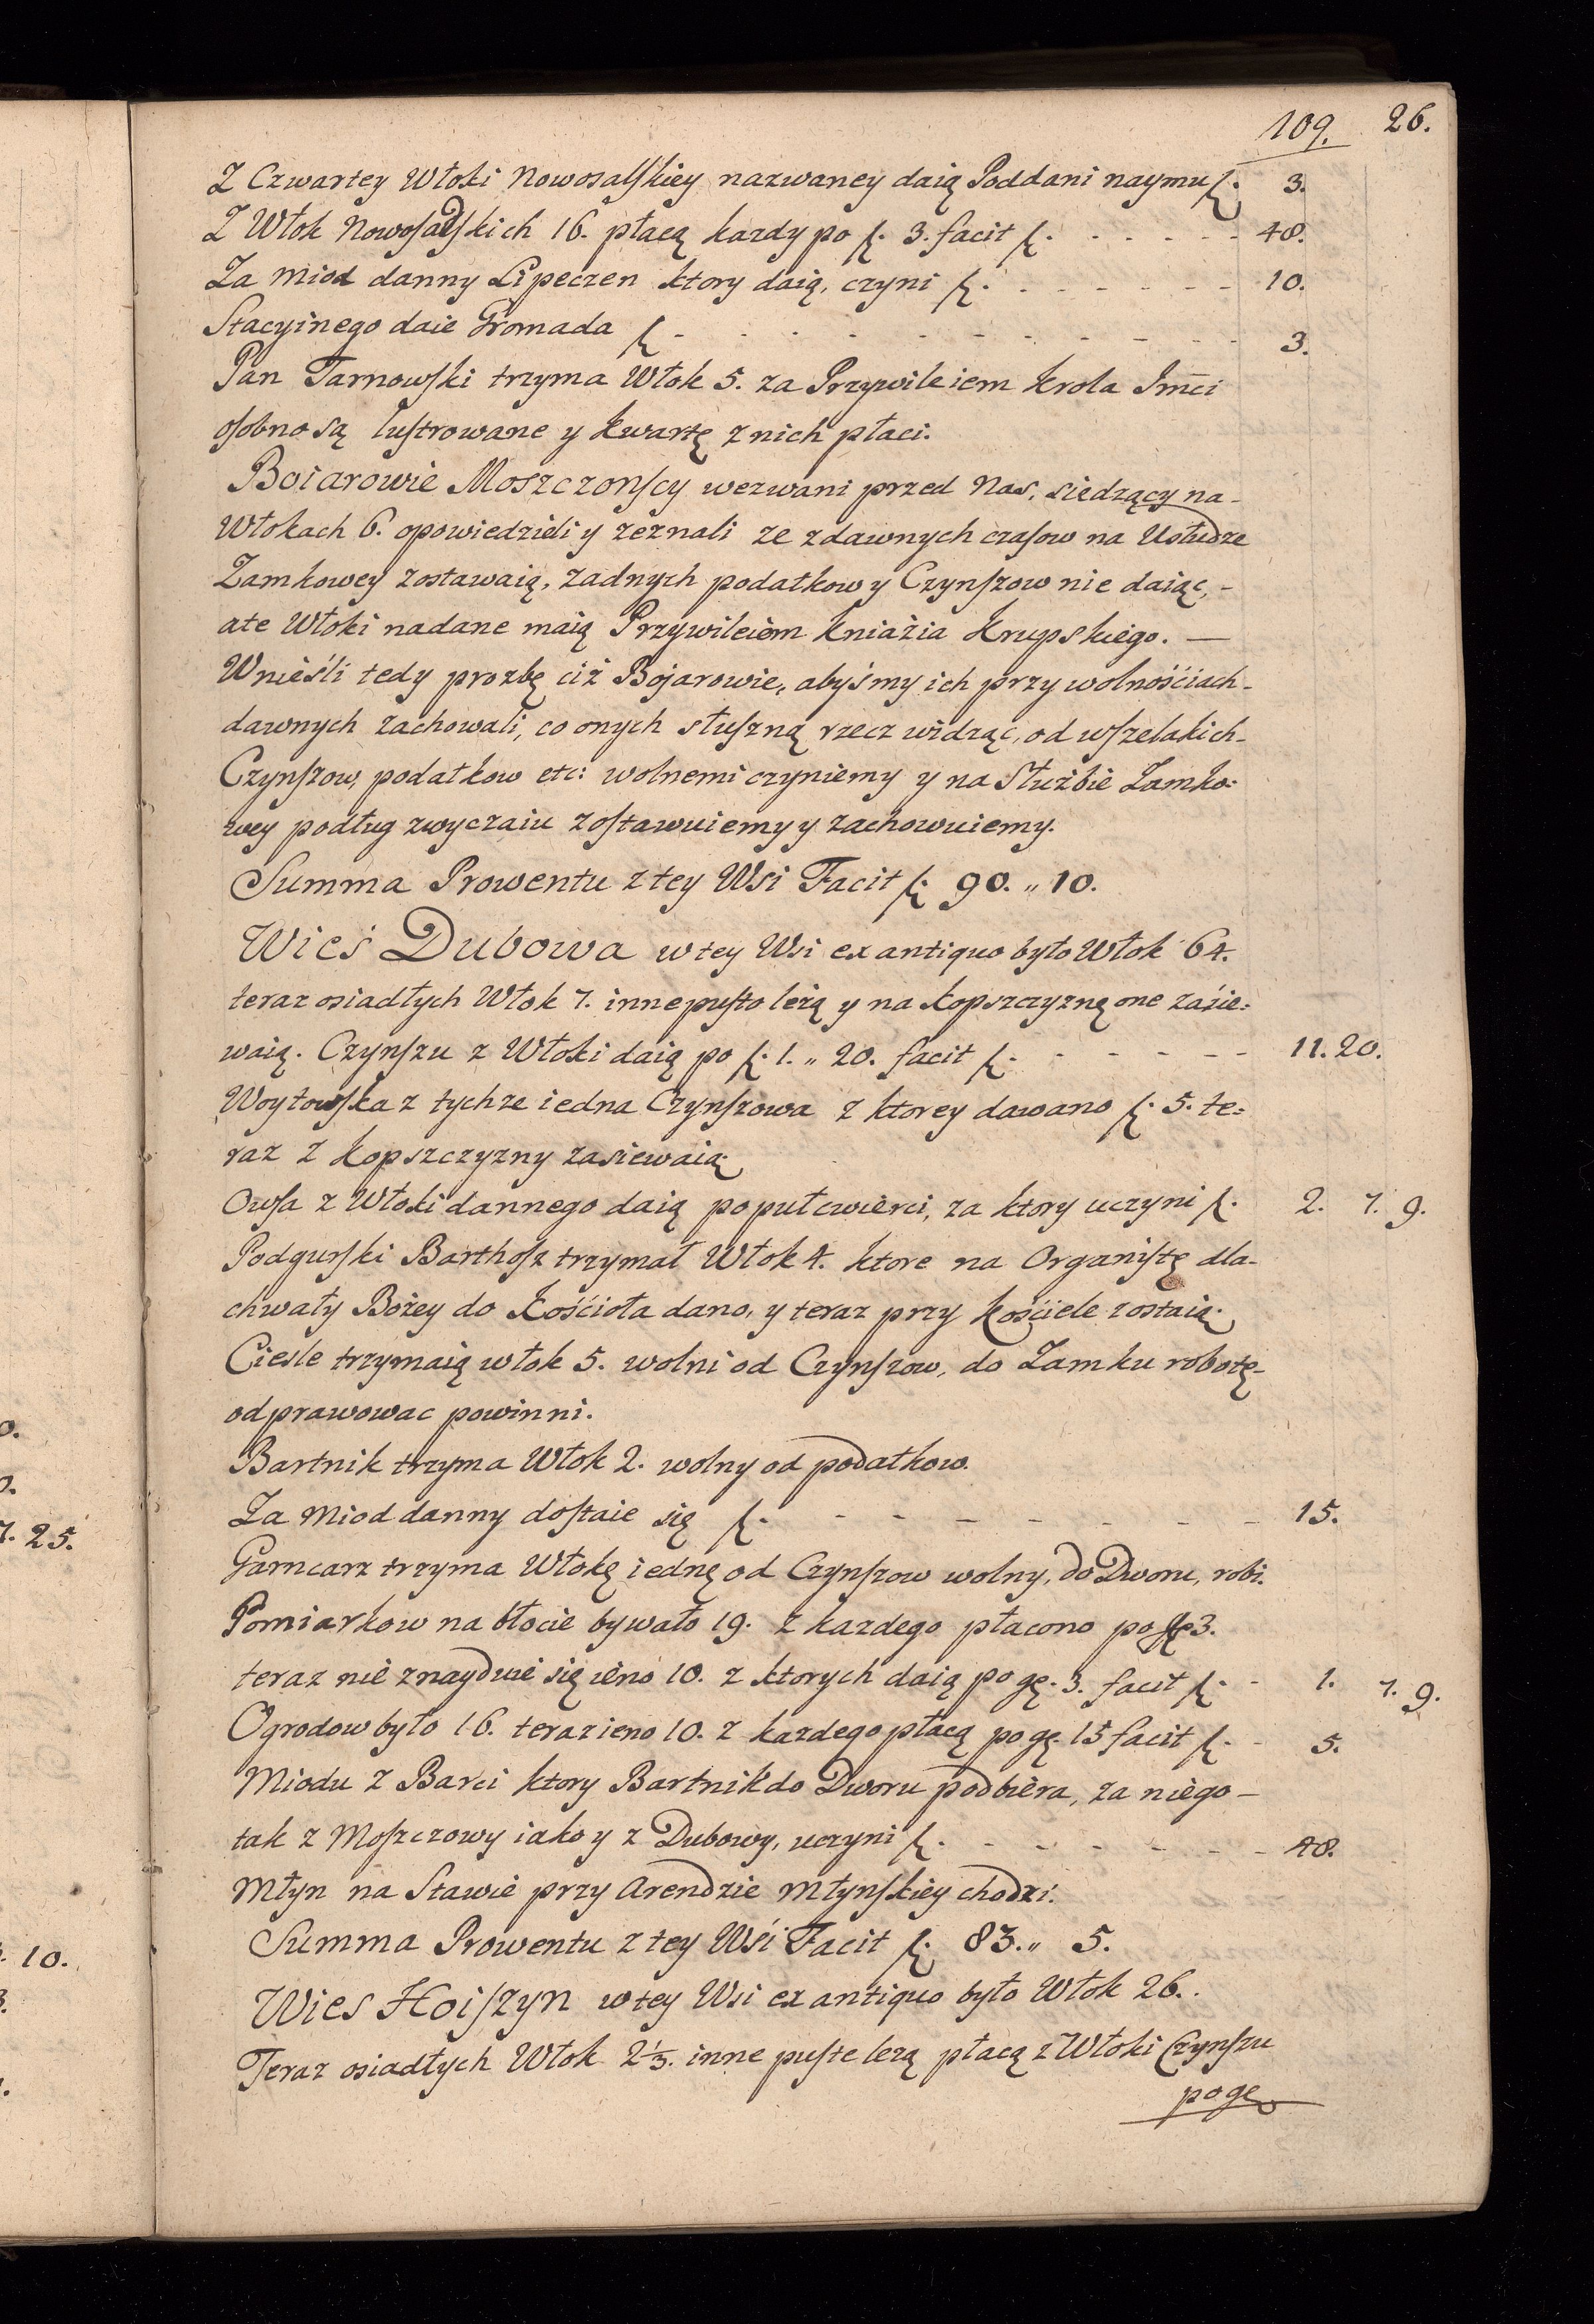 109. 26.
Z Czwartey Włoki Nowosałskiey nazwaney daią Poddani naymu f. 3.
Z Włok Nowosadskich 16. płacą kazdy po f. 3. facit f. - - - - - - 48.
Za Miod danny Lipeczen ktory daią, czyni f. - - - - - - - 10.
Stacyinego daie Gromada f - - - - - - - - - 3.
Pan Tarnowski trzyma Włok 5. za Przywileiem Krola Jmci
osobno są lustrowane y kwartę znich płaci.
Boiarowie Moszczonscy wezwani przed Nas, siedzący na-
Włokach 6. opowiedzieli y zeznali ze zdawnych czasow na Usłudze
Zamkowey zostawaią, żadnych podatkow y Czynszow nie daiąc, -
ate Włoki nadane maią Przywileiem Kniaźia Krupskiego. —
Wnieśli tedy prozbę ciż Bojarowie, abyśmy ich przy wolnościach-
dawnych zachowali, co onych słuszną rzecz widząc, od wszelakich-
Czynszow, podatkow etc: wolnemi czyniemy y na Służbie Zamko=
wey podług zwyczaiu zostawuiemy y zachowuiemy.
Summa Prowentu z tey Wsi Facit f. 90. „ 10.
Wieś Dubowa w tey Wsi ex antiquo było Włok 64.
teraz osiadłych Włok 7. inne pusto leżą y na kopszczyznę one zaśie=
waią. Czynszu z Włoki daią po f. 1. „ 20. facit f. - - - - - - 11. 20.
Woytowska z tychze iedna Czynszowa z ktorey dawano f. 5. te=
raz z kopszczyzny zasiewaią
Owsa z Włoki dannego daią po puł cwierci, za ktory uczyni f. 2. 7. 9.
Podgurski Barthosz trzymał Włok 4. ktore na Organistę dla-
chwały Bożey do Kościoła dano, y teraz przy kościele zostaią.
Ciesle trzymaią włok 5. wolni od Czynszow, do Zamku robotę-
odprawowac powinni.
Bartnik trzyma Włok 2. wolny od podatkow.
Za Miod danny dostaie się f. - - - - - - - - 15.
Garncarz trzyma Włokę iednę od Czynszow wolny, do Dworu, robi.
Pomiarkow na błocie bywało 19. z kazdego płacono po gr 3.
teraz nie znayduie się ieno 10. z ktorych daią po gę. 3. facit f. - 1. 7. 9.
Ogrodow było 16. teraz ieno 10. z kazdego płacą po gę. 15 facit f. - 5.
Miodu z Barci ktory Bartnik do Dworu podbiera, za niego -
tak z Moszczowy iako y z Dubowy, uczyni f. - - - - - - - 48.
Młyn na Stawie przy Arendzie Młynskiey chodzi.
Summa Prowentu z tey Wśi Facit f. 83. „ 5.
Wies Hoiszyn w tey Wsi ex antiquo było Włok 26.
Teraz osiadłych Włok 2⅓. inne puste lezą płacą z Włoki Czynszu
po gę
0.
7. 25.
10.